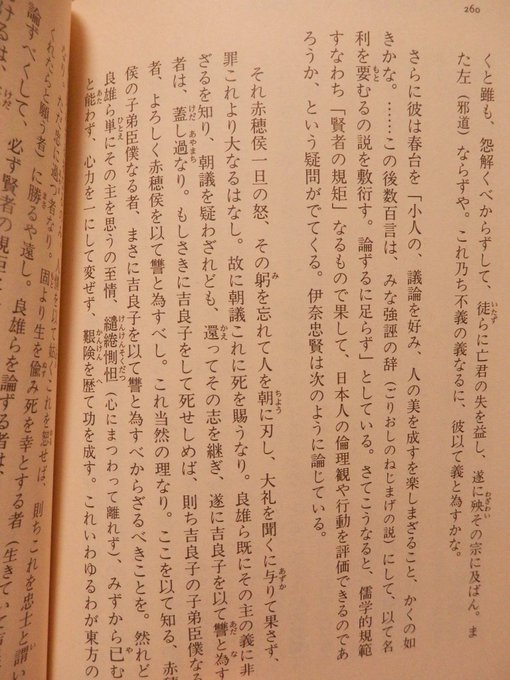 260
くと雖も、怨解くべからずして、徒らに亡君の失を益し、遂に殃その宗に及ばん。ま
いたず
わざわい
た左（邪道）ならずや。これ乃ち不義の義なるに、彼以て義と為すかな。
さらに彼は春台を「小人の、議論を好み、人の美を成すを楽しまざること、かくの如
きかな。……この後数百言は、みな強誣の辞（ごりおしのねじまげの説）にして、以て名
利を要むるの説を敷衍す。論ずるに足らず」としている。さてこうなると、儒学的規範
もと
すなわち「賢者の規矩」なるもので果して、日本人の倫理観や行動を評価できるのであ
ろうか、という疑問がでてくる。伊奈忠賢は次のように論じている。
それ赤穂侯一旦の怒、その躬を忘れて人を朝に刃し、大礼を聞くに与りて果さず、
み
ちよう
あずか
罪これより大なるはなし。故に朝議これに死を賜うなり。良雄ら既にその主の義に非
ざるを知り、朝議を疑わざれども、還ってその志を継ぎ、遂に吉良子を以て讐と為す
かえ
あだ
な
者は、蓋し過なり。もしさきに吉良子をして死せしめば、則ち吉良子の子弟臣僕なる
けだ
あやまち
者、よろしく赤穂侯を以て讐と為すべし。これ当然の理なり。ここを以て知る、赤穂
侯の子弟臣僕なる者、まさに吉良子を以て讐と為すべからざるべきことを。然れど
良雄ら単にその主を思うの至情、繾綣惻怛（心にまつわって離れず）、みずから已む
ひとえ
けんけんそくだつ
や
と能わず、心力を一にして変ぜず、艱険を歴て功を成す。これいわゆるわが東方の
あた
かんけん
へ
くれたらと願う者）に勝るや遠し。良雄らを論ずる者は、
論ずべくして、必ず賢者の規矩に
けるは、
けだ
これを恕せば、則ちこれを忠士と謂い
い
固より生を偸み死を幸とする者（生きていて